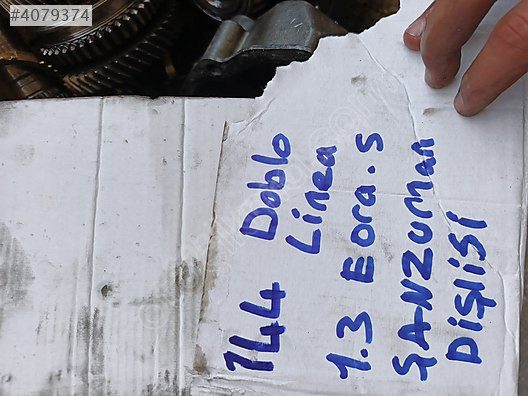 #4079374
144 Doblo
Linea
1.3 Eora.s
ŞANZUMAn
DişLisi